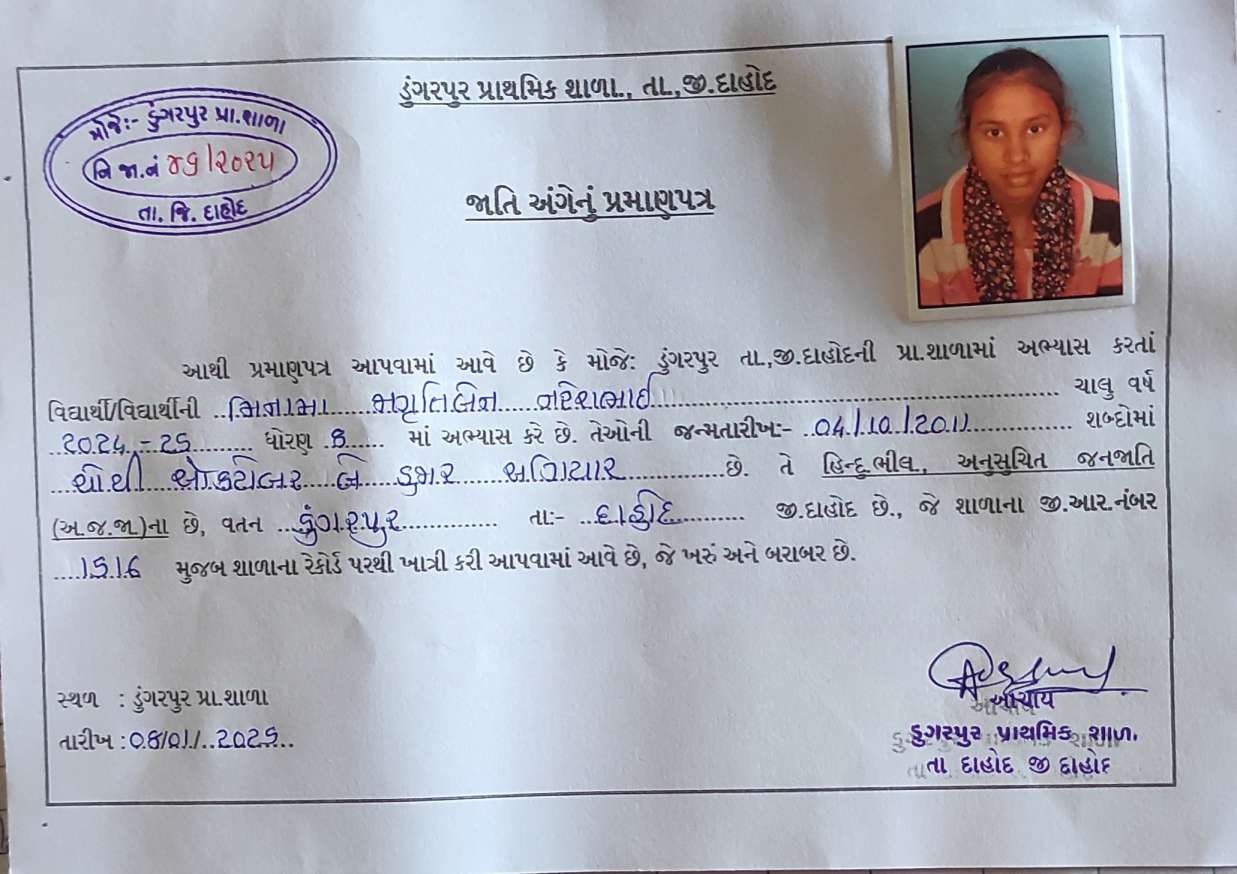 ડુંગરપુર પ્રાથમિક શાળા., તા.,જી.દાહોદ
મોજેઃ- ડુંગરપુર પ્રા.શાળા
નિ જા.નં ૪૬/૨૦૨૫
તા. જિ. દાહોદ
જાતિ અંગેનું પ્રમાણપત્ર
આથી પ્રમાણપત્ર આપવામાં આવે છે કે મોજે: ડુંગરપુર તા.,જી.દાહોદની પ્રા.શાળામાં અભ્યાસ કરતાં
વિદ્યાર્થી/વિદ્યાર્થીની મિનામા ચાલુ વર્ષ
2024-25 ધોરણ 8 માં અભ્યાસ કરે છે. તેઓની જન્મતારીખ:- 04/10/2011 શબ્દોમાં
ચોથી ઓક્ટોબર બે હજાર અગિયાર છે. તે હિન્દુ ભીલ, અનુસુચિત જનજાતિ
(અ.જ.જા)ના છે, વતન ડુંગરપુર તાઃ- દાહોદ જી.દાહોદ છે., જે શાળાના જી.આર.નંબર
1516 મુજબ શાળાના રેકોર્ડ પરથી ખાત્રી કરી આપવામાં આવે છે, જે ખરું અને બરાબર છે.
સ્થળ : ડુંગરપુર પ્રા.શાળા
તારીખ : 08/01/2025
આચાય
ડુગરપુર પ્રાથમિક શાળા.
તા દાહોદ જી દાહોદ